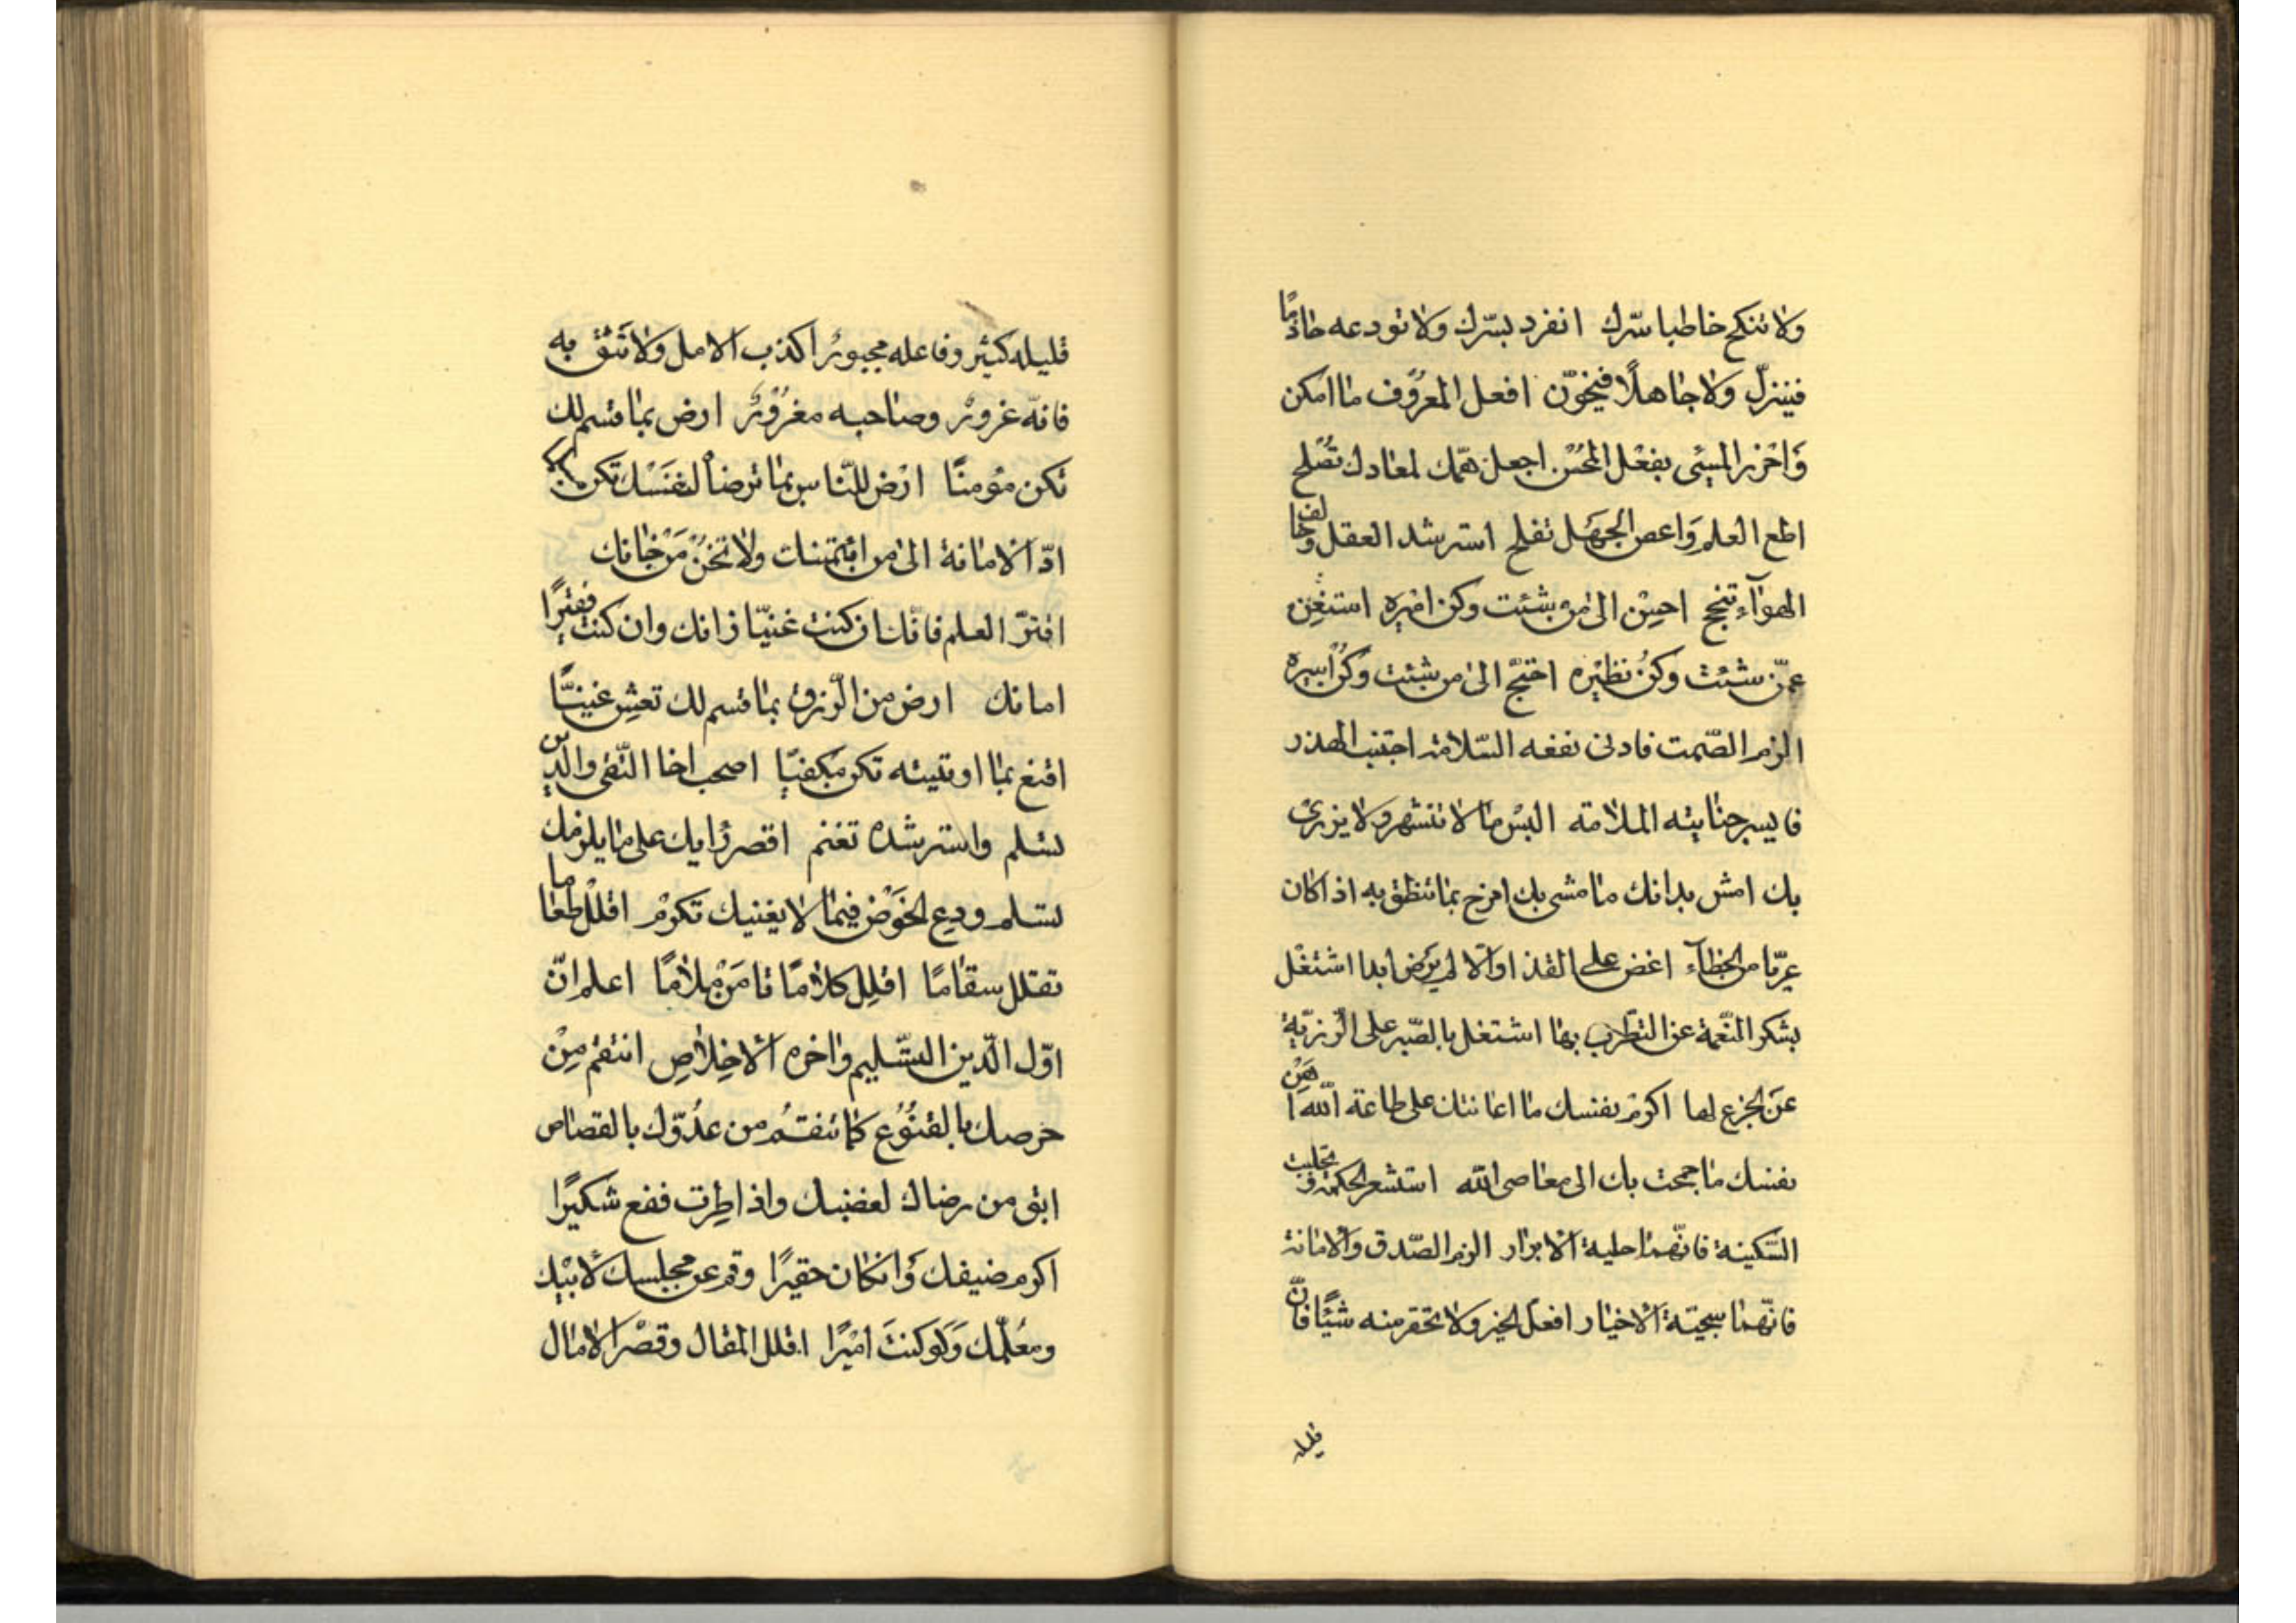 ولا تنكح خاطبا سّرك انفرد بسّرك ولا تودعه حاذمًا
فينزلّ ولا جاهلًا فيخوّن افعل المعرُوف ما امكن
وَاحْزر المسِئى بفعْل المحُسْن اجعل همّك لمعادك تصُلح
اطع العلم وَاعص الجهَل تفلح استرشد العقل وخالف
الهوآء تنجح احسِن الى من شئت وكن اميره استغِن
عمّن شئت وكنُ نظيْره احتجْ الى من شئت وكُن اسيره
الزم الصّمت فادنى نفعه السّلامة اجتنب الهذر
فايسر جنايته الملامة البسْ ما لا تشتهر ولا يزرىْ
بك امش بدائك ما مشى بك امزح بما تنظق به اذا كان
عريّا من الخطآء اغض على القذا والّا لم يرَض ابدا اشتغل
بشكر النّعمة عن التطّرب بها اشتغل بالصّبر على الّرزيّة
عنَ الجزع لها اكرمْ نفسك ما اعانتك على طاعة اللّه اهَِنْ
نفسك ما جمحت بك الى معاصى اللّه استشعر الحكمة وتجلبب
السّكينة فانّهما حلية الابرار الزم الصّدق والامانة
فانّهما سجيّة الاخيار افعل الخير ولا تحقر منه شيًئا فانّ
قليله
قليله كثير وفاعله مجبورٌ اكذب الامل ولا تَثقْ به
فانّه غرورٌ وصاحبه مغرُورٌ ارض بما قسم لك
تكن مؤمنًا ارْض للنّاس بما ترضاْ لنفَسْك تكن
ادّ الامانة الى من ائتمنك ولا تخنُ مَنْ خانك
افتَرّ العلم فانّك ان كنت غنيّا زانك وان كنت فقيرًا
امانك ارض من الّرزق بما قسم لك تعشِ غنيًّا
اقنع بما اوتيته تكن مكفيّا اصحب اخا التّقى والدّين
تسلم واسترشده تغنم اقصر رأيك على ما يلزمك
تسلم ودع الخوَض فيما لا يعنيك تكرمْ اقللْ طعاما
تقلل سقامًا اقلِل كلامًا تامَنْ ملامًا اعلم انّ
اوّل الّدين التّسليم واخره الاخِلاصِ انتقم مِنْ
حرصك بالقنُوُع كما تنتقمُ من عدُوّك بالقصاص
ابق من رضاك لغضبك واذا طِرت فقع شكيرًا
اكرم ضيفك وَان كان حقيرًا وقم عن مجلسك لابْيك
ومعُلّمك وَلَو كنتَ اميْرًا اقلل المقال وقصْر الامال